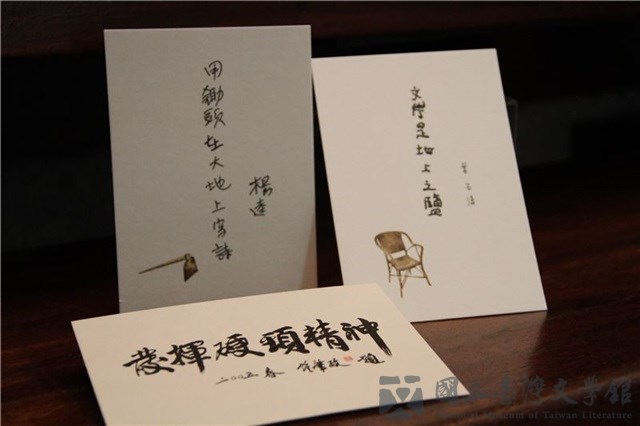 用鋤頭在大地上寫詩
楊逵
文學是地上之鹽
葉石濤
發揮硬頸精神
二〇〇五春 鍾肇政 題
國立臺灣文學館
National Museum of Taiwan Literature